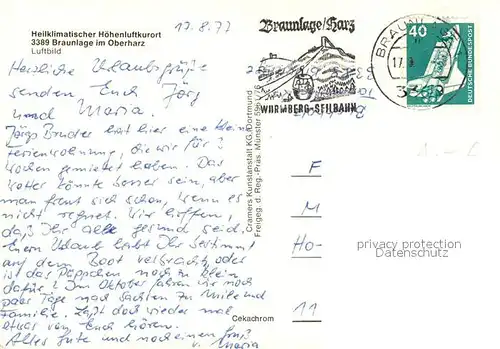 17.8.77
Heilklimatischer Höhenluftkurort
3389 Braunlage im Oberharz
Luftbild
Herzliche Urlaubsgrüße
senden Euch Jörg
und Maria.
Jörgs Bruder hat hier eine kleine
Ferienwohnung, die wir für 3
Wochen gemietet haben. Das
Wetter könnte besser sein, aber
man freut sich schon, wenn es
nicht regnet. Wir hoffen,
daß Ihr alle gesund seid.
Euren Urlaub habt Ihr bestimmt
auf dem Boot verbracht, oder
ist das Päppchen noch zu klein
dafür? Im Oktober fahren wir noch
paar Tage nach Sachsen zu
und Familie. Laßt doch wieder mal
etwas von Euch hören.
Alles Gute und noch einen Gruß
v. Maria
Cramers Kunstanstalt KG, Dortmund
Freigeg. d. Reg.-Präs. Münster
Cekachrom
Braunlage/Harz
WURMBERG-SEILBAHN
BRAUNLAGE
17.
3389
40
DEUTSCHE BUNDESPOST
F
M
Ho-
11
privacy protection
Datenschutz